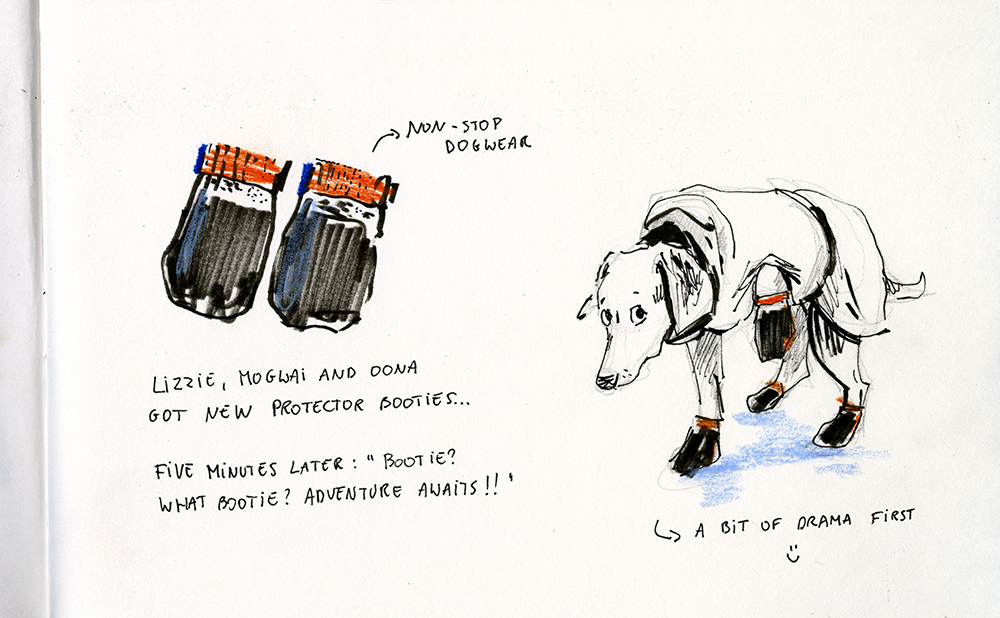 NON-STOP
DOGWEAR
LiZZiE, MOGWAi AND OONA
GOT NEW PROTECTOR BOOTiES...
FiVE MiNUTES LATER: "BOOTiE?
WHAT BOOTiE? ADVENTURE AWAiTS!!"
A BiT OF DRAMA FiRST